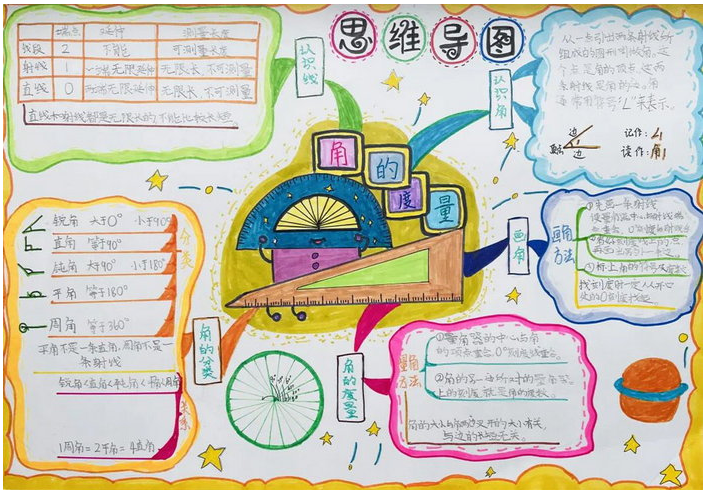 思维导图
端点 延伸 测量长度
线段 2 不能 可测量长度
射线 1 一端无限延伸 无限长,不可测量
直线 0 两端无限延伸 无限长,不可测量
直线和射线都是无限长的不能比较长短
认识线
认识角
从一点引出两条射线所
组成的图形叫做角,这
个点是角的顶点,这两
条射线是角的边。角
通常用符号"∠"来表示。
边
边
记作:∠1
读作:角1
角的度量
分类
锐角 大于0° 小于90°
直角 等于90°
钝角 大于90° 小于180°
平角 等于180°
周角 等于360°
平角不是一条直线,周角不是一
条射线
锐角<直角<钝角<平角<周角
关系
1周角=2平角=4直角
角的分类
画角
画角方法
①先画一条射线
角的度量
量角方法
①量角器的中心与角
的顶点重合,0°刻度线重合。
②角的另一边所对的量角器
上的刻度,就是角的度数。
角的大小与角两边叉开的大小有关,
与边的长短无关。